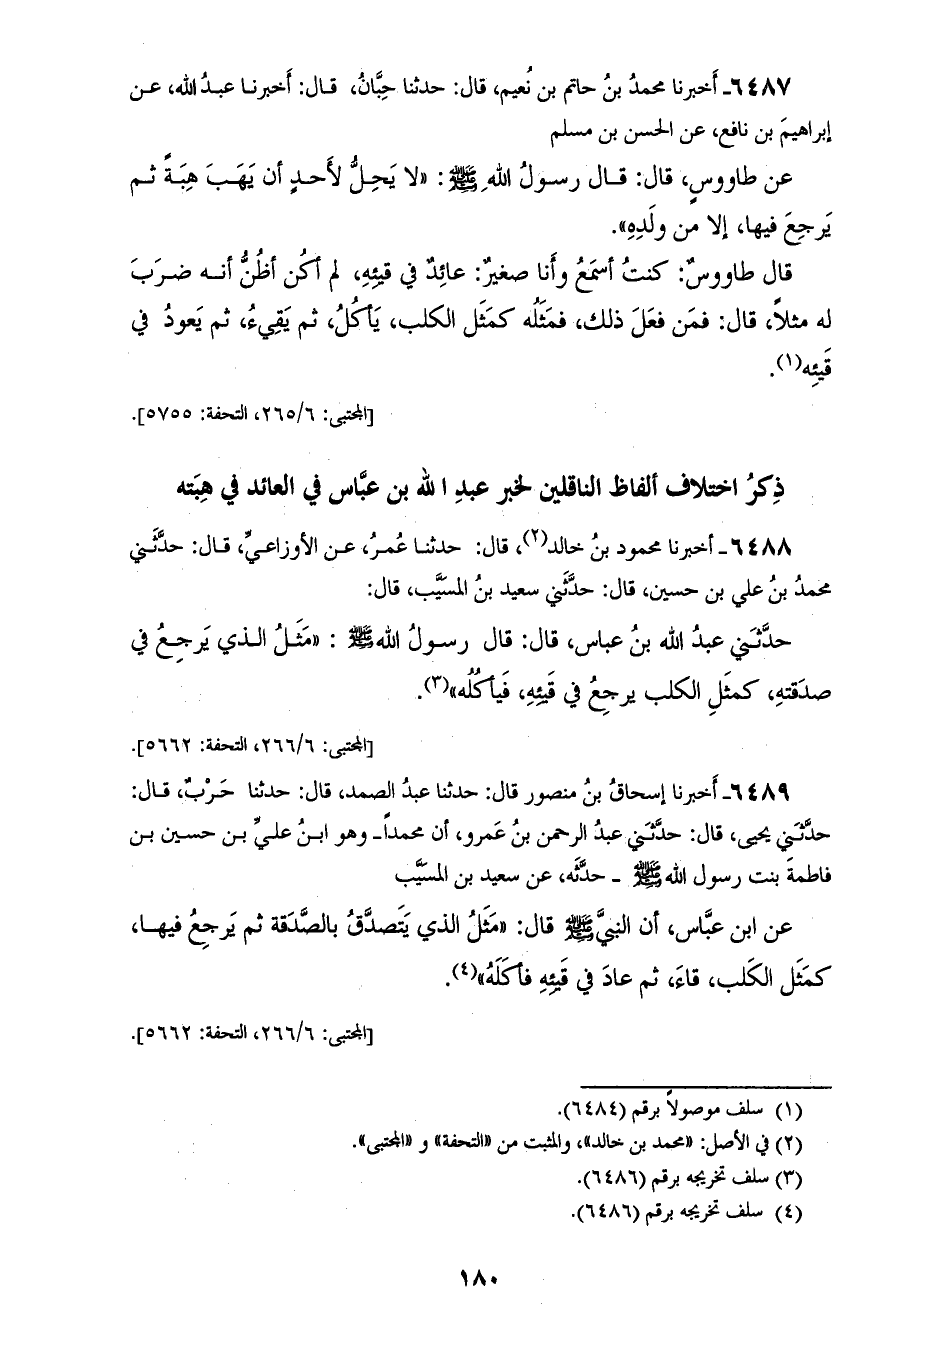 ٦٤٨٧ـ أَخبرنا محمدُ بنُ حاتم بن نُعيم، قال: حدثنا حِبَّانُ، قال: أَخبرنا عبدُ الله، عن
إبراهيمَ بن نافع، عن الحسن بن مسلم
عن طاووسٍ، قال: قال رسولُ اللهِ ﷺ: «لا يَحِلُّ لأَحدٍ أن يَهَبَ هِبَةً ثم
يَرجِعَ فيها، إلا من ولَدِهِ».
قال طاووسٌ: كنتُ أسمَعُ وأَنا صغيرٌ: عائِدٌ في قيئِهِ، لم أكُن أظُنُّ أنه ضرَبَ
له مثلاً، قال: فمَن فعَلَ ذلك، فمَثَلُه كمَثَل الكلب، يَأكُلُ، ثم يَقِيءُ، ثم يَعودُ في
قَيئِه(١).
[المجتبى: ٢٦٥/٦، التحفة: ٥٧٥٥].
ذِكرُ اختلاف ألفاظ الناقلين لخبر عبدِ الله بن عبَّاس في العائد في هِبَته
٦٤٨٨ـ أخبرنا محمود بنُ خالد(٢)، قال: حدثنا عُمرُ، عن الأوزاعيِّ، قال: حدَّثَني
محمدُ بنُ علي بن حسين، قال: حدَّثَني سعيد بنُ المسَيَّب، قال:
حدَّثَني عبدُ الله بنُ عباس، قال: قال رسولُ الله ﷺ : «مَثَلُ الذي يَرجِعُ في
صدَقتهِ، كمثَلِ الكلب يرجِعُ في قَيئِهِ، فَيأكُلُه»(٣).
[المجتبى: ٢٦٦/٦، التحفة: ٥٦٦٢].
٦٤٨٩ـ أَخبرنا إسحاقُ بنُ منصور قال: حدثنا عبدُ الصمد، قال: حدثنا حَرْبٌ، قال:
حدَّثَني يحيى، قال: حدَّثَني عبدُ الرحمن بنُ عَمرو، أن محمداً ـ وهو ابنُ عليِّ بن حسين بن
فاطمةَ بنت رسول الله ﷺ ـ حدَّثَه، عن سعيد بن المسَيَّب
عن ابن عبَّاس، أن النبيَّ ﷺ قال: «مَثَلُ الذي يَتَصدَّقُ بالصَّدَقة ثم يَرجِعُ فيها،
كمَثَل الكَلب، قاءَ، ثم عادَ في قَيئِهِ فأكَلَهُ»(٤).
[المجتبى: ٢٦٦/٦، التحفة: ٥٦٦٢].
(١) سلف موصولاً برقم (٦٤٨٤).
(٢) في الأصل: «محمد بن خالد»، والمثبت من «التحفة» و «المجتبى».
(٣) سلف تخريجه برقم (٦٤٨٦).
(٤) سلف تخريجه برقم (٦٤٨٦).
١٨٠